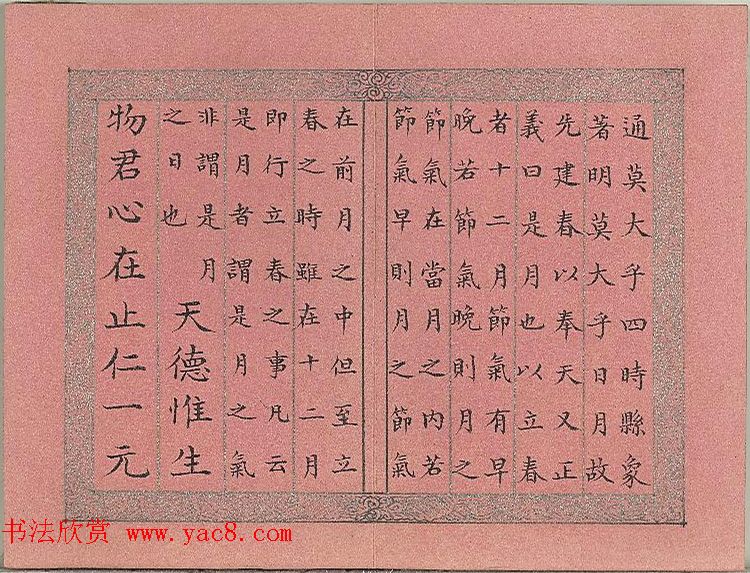 通莫大乎四時縣象
著明莫大乎日月故
先建春以奉天又正
義曰是月也以立春
者十二月節氣有早
晚若節氣晚則月之
節氣在當月之内若
節氣早則月之節氣
在前月之中但至立
春之時雖在十二月
即行立春之事凡云
是月者謂是月之氣
非謂是月
之日也
天德惟生
物君心在止仁一元
书法欣赏 www.yac8.com